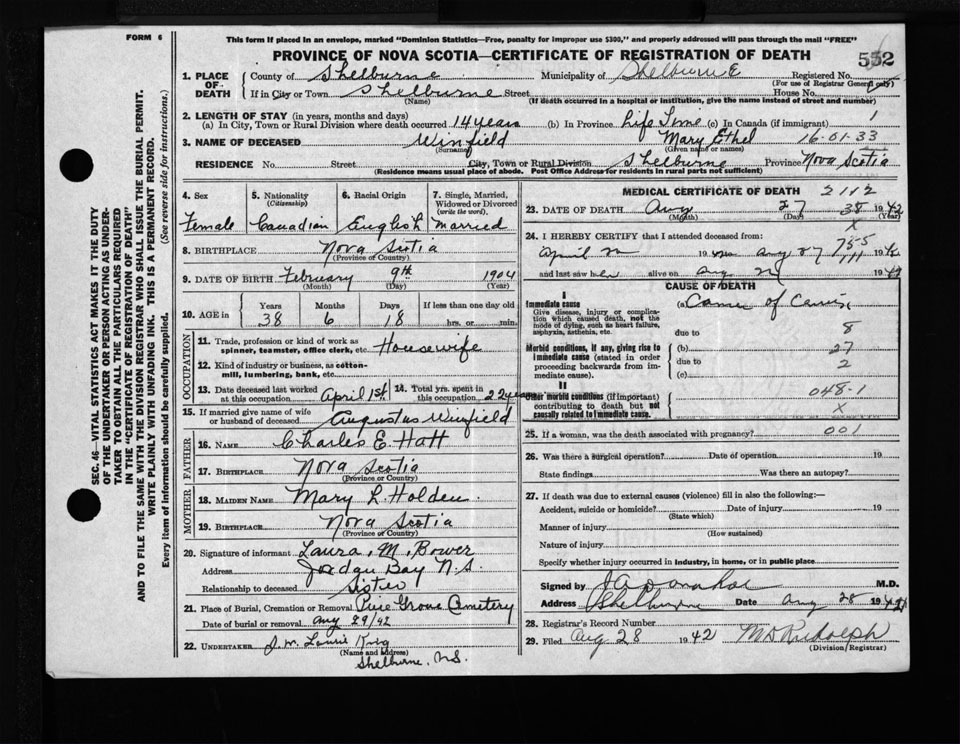 FORM 6
This form if placed in an envelope, marked "Dominion Statistics—Free, penalty for improper use $300," and properly addressed will pass through the mail "FREE"
PROVINCE OF NOVA SCOTIA—CERTIFICATE OF REGISTRATION OF DEATH
552
1. PLACE OF DEATH
County of Shelburne Municipality of Shelburne Registered No.
(For use of Registrar General only)
If in City or Town Shelburne Street House No.
(Name) (If death occurred in a hospital or institution, give the name instead of street and number)
2. LENGTH OF STAY (in years, months and days)
(a) In City, Town or Rural Division where death occurred 14 years (b) In Province Life Time (c) In Canada (if immigrant) 1
3. NAME OF DECEASED Winfield Mary Ethel 16-01-33
(Surname) (Given name or names)
RESIDENCE No. Street City, Town or Rural Division Shelburne Province Nova Scotia
(Residence means usual place of abode. Post Office Address for residents in rural parts not sufficient)
4. Sex Female
5. Nationality (Citizenship) Canadian
6. Racial Origin English
7. Single, Married, Widowed or Divorced (write the word), Married
8. BIRTHPLACE Nova Scotia
(Province or Country)
9. DATE OF BIRTH February 9th 1904
(Month) (Day) (Year)
10. AGE in Years 38 Months 6 Days 18 If less than one day old hrs. or min.
OCCUPATION
11. Trade, profession or kind of work as spinner, teamster, office clerk, etc. Housewife
12. Kind of industry or business, as cotton-mill, lumbering, bank, etc.
13. Date deceased last worked at this occupation April 1st
14. Total yrs. spent in this occupation 22 years
15. If married give name of wife or husband of deceased Augustus Winfield
FATHER
16. NAME Charles E. Hatt
17. BIRTHPLACE Nova Scotia
(Province or Country)
MOTHER
18. MAIDEN NAME Mary L. Holden
19. BIRTHPLACE Nova Scotia
(Province or Country)
20. Signature of informant Laura M. Bower
Address Jordan Bay N.S.
Relationship to deceased Sister
21. Place of Burial, Cremation or Removal Pine Grove Cemetery
Date of burial or removal Aug 29/42
22. UNDERTAKER
(Name and Address)
Shelburne, N.S.
MEDICAL CERTIFICATE OF DEATH 2112
23. DATE OF DEATH Aug 27 38 1942
(Month) (Day) (Year)
X
24. I HEREBY CERTIFY that I attended deceased from:
April 19 to Aug 27 19
and last saw her alive on Aug 19
CAUSE OF DEATH
I
Immediate cause
Give disease, injury or complication which caused death, not the mode of dying, such as heart failure, asphyxia, asthenia, etc.
(a)
due to 8
Morbid conditions, if any, giving rise to immediate cause (stated in order proceeding backwards from immediate cause).
(b) 27
due to 2
(c)
II
Other morbid conditions (if important) contributing to death but not causally related to immediate cause.
048-1
X
25. If a woman, was the death associated with pregnancy? 001
26. Was there a surgical operation? Date of operation 19
State findings Was there an autopsy?
27. If death was due to external causes (violence) fill in also the following:—
Accident, suicide or homicide? Date of injury 19
(State which)
Manner of injury
(How sustained)
Nature of injury
Specify whether injury occurred in industry, in home, or in public place
Signed by M.D.
Address Shelburne Date Aug 28 19
28. Registrar's Record Number
29. Filed Aug 28 1942 M D Rudolph
(Division Registrar)
SEC. 46—VITAL STATISTICS ACT MAKES IT THE DUTY
OF THE UNDERTAKER OR PERSON ACTING AS UNDER-
TAKER TO OBTAIN ALL THE PARTICULARS REQUIRED
IN THE "CERTIFICATE OF REGISTRATION OF DEATH"
AND TO FILE THE SAME WITH THE DIVISION REGISTRAR WHO SHALL ISSUE THE BURIAL PERMIT.
WRITE PLAINLY WITH UNFADING INK. THIS IS A PERMANENT RECORD.
Every item of information should be carefully supplied. (See reverse side for instructions.)